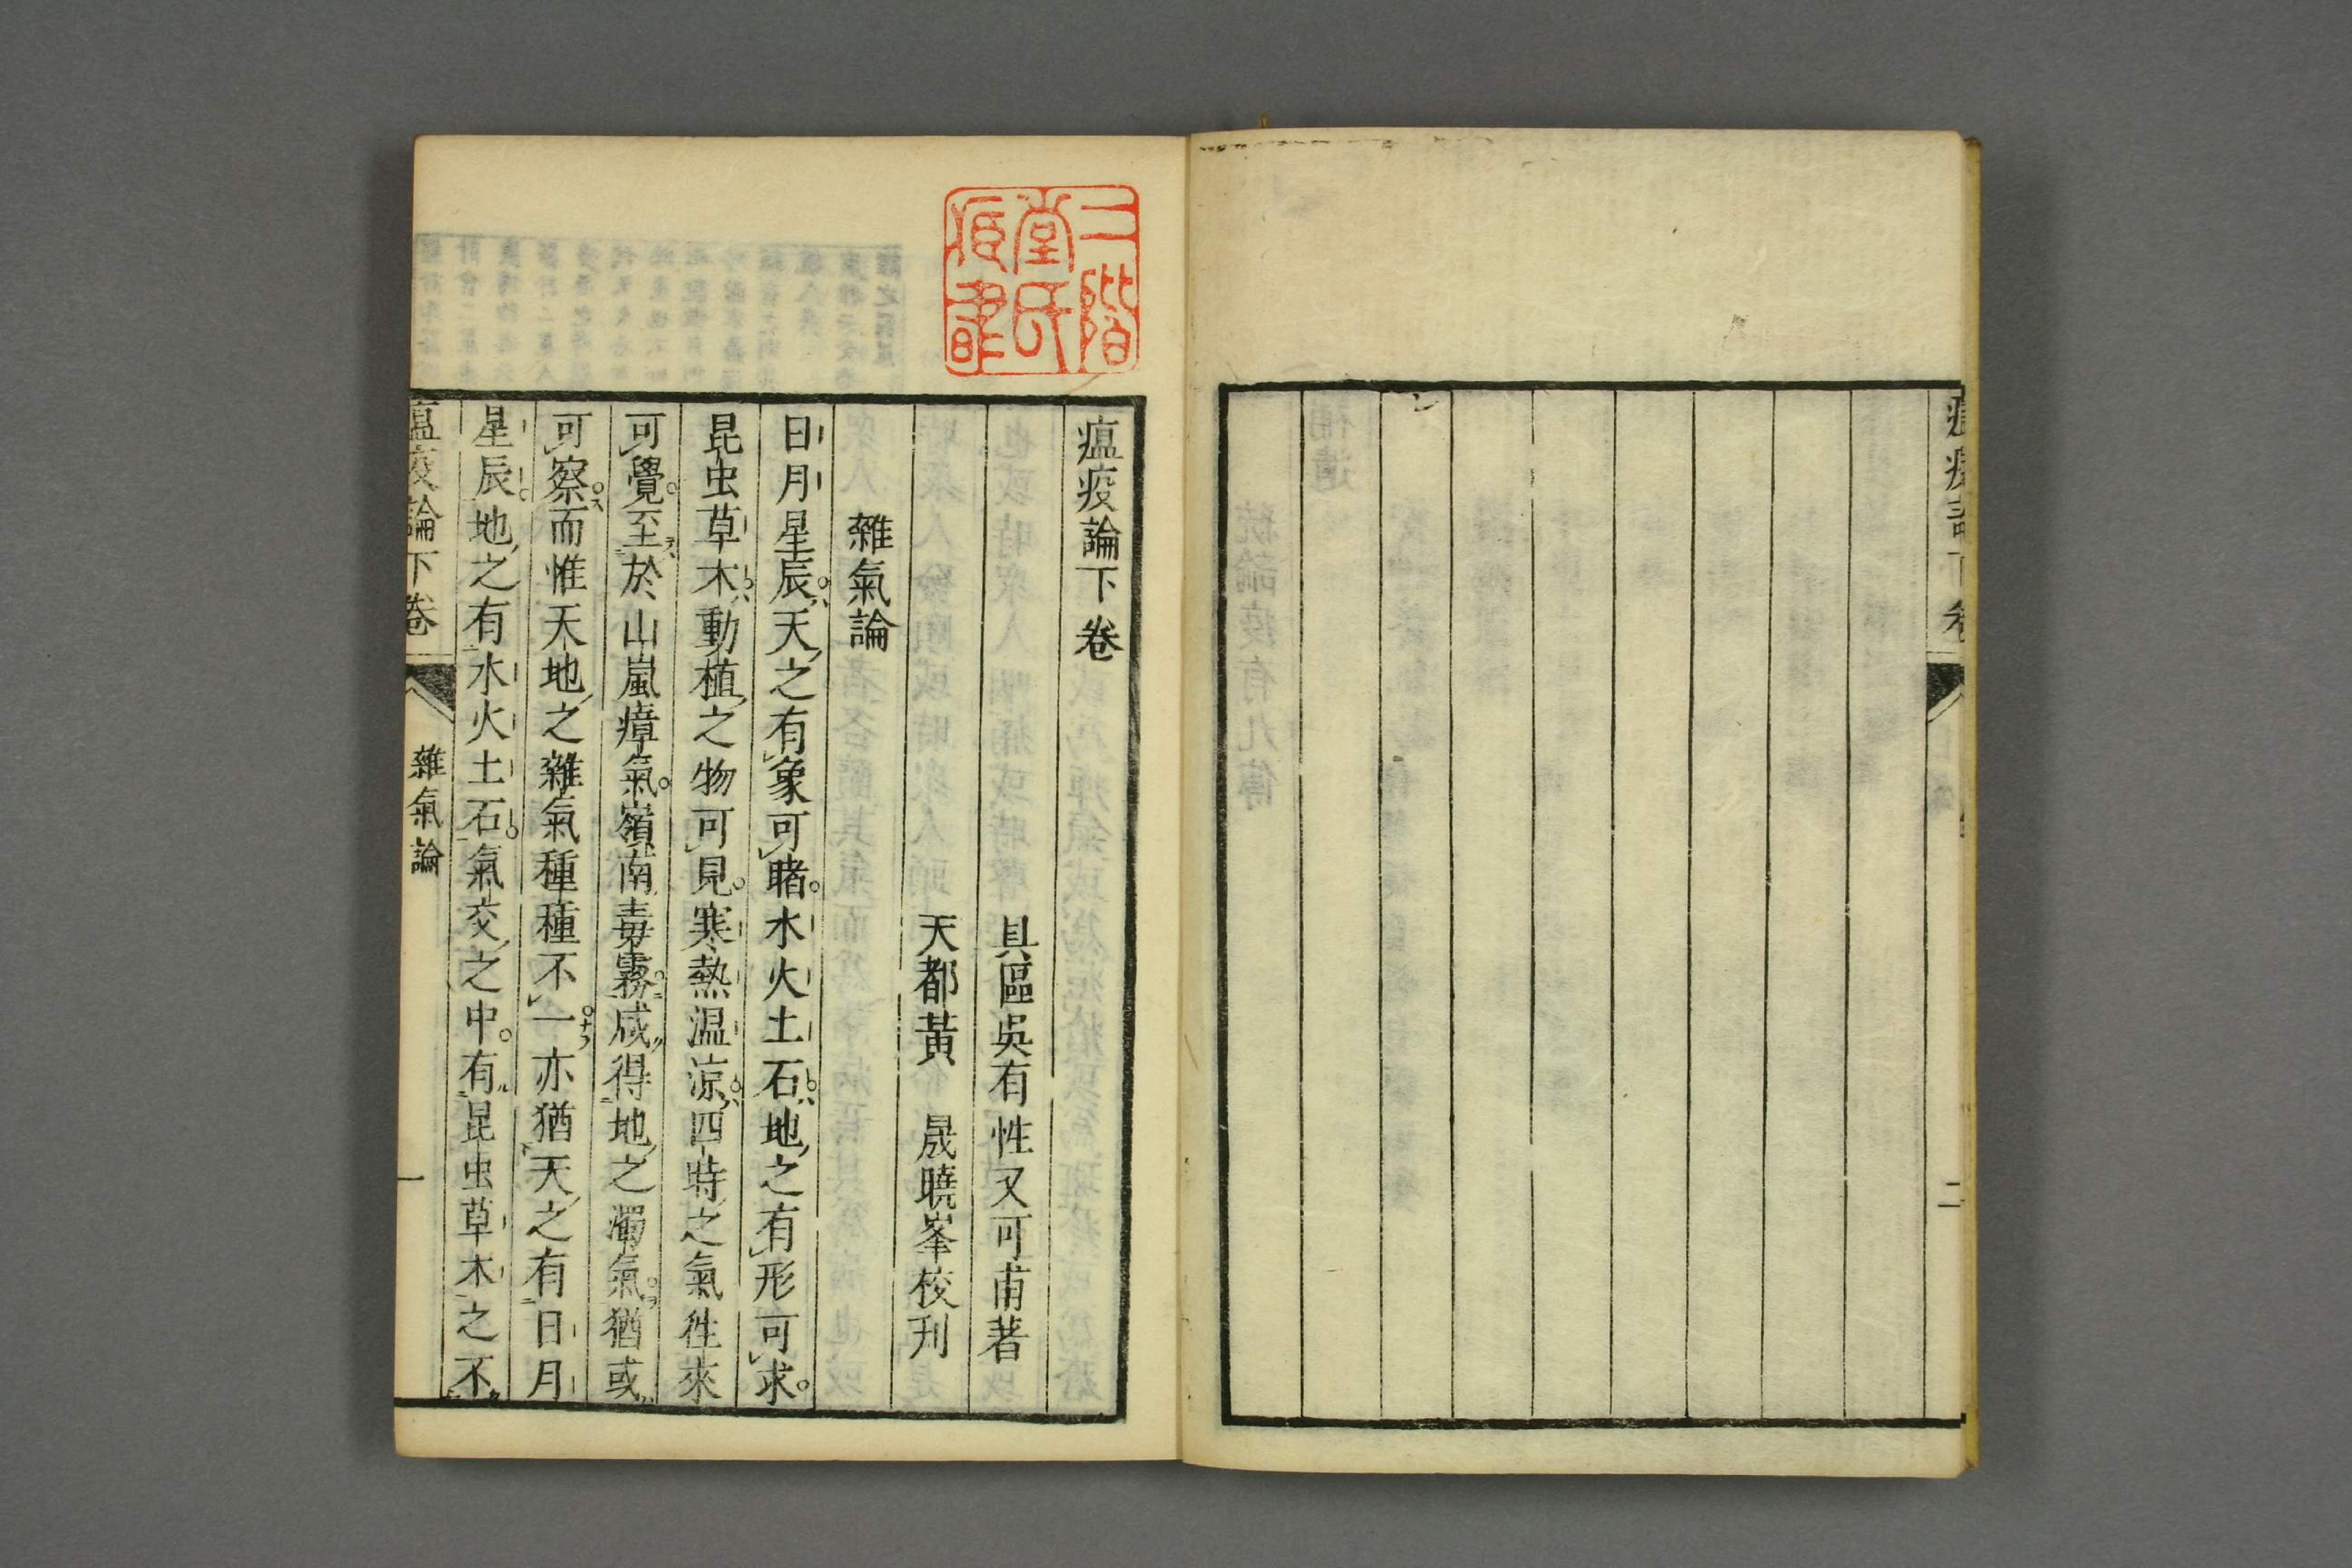 瘟疫論下卷
二
二階
堂氏
瘟疫論下卷
具區吳有性又可甫著
天都黃 晟曉峯校刋
雜氣論
日月星辰。ハ天ノ之有レ象可レ睹。水火土石。ハ地ノ之有レ形可レ求。
昆虫草木。ハ動植ノ之物可レ見。寒熱温涼。ハ四時ノ之氣徃來
可レ覺。至二於山嵐瘴氣。嶺南毒霧。咸得二地ノ之濁氣。猶或
可レ察ス。而惟天地ノ之雜氣種種不レ一。ナラ亦猶レ天ノ之有二日月
星辰。地ノ之有二水火土石。氣交ノ之中。有ル二昆虫草木之不
瘟疫論下卷
雜氣論
一